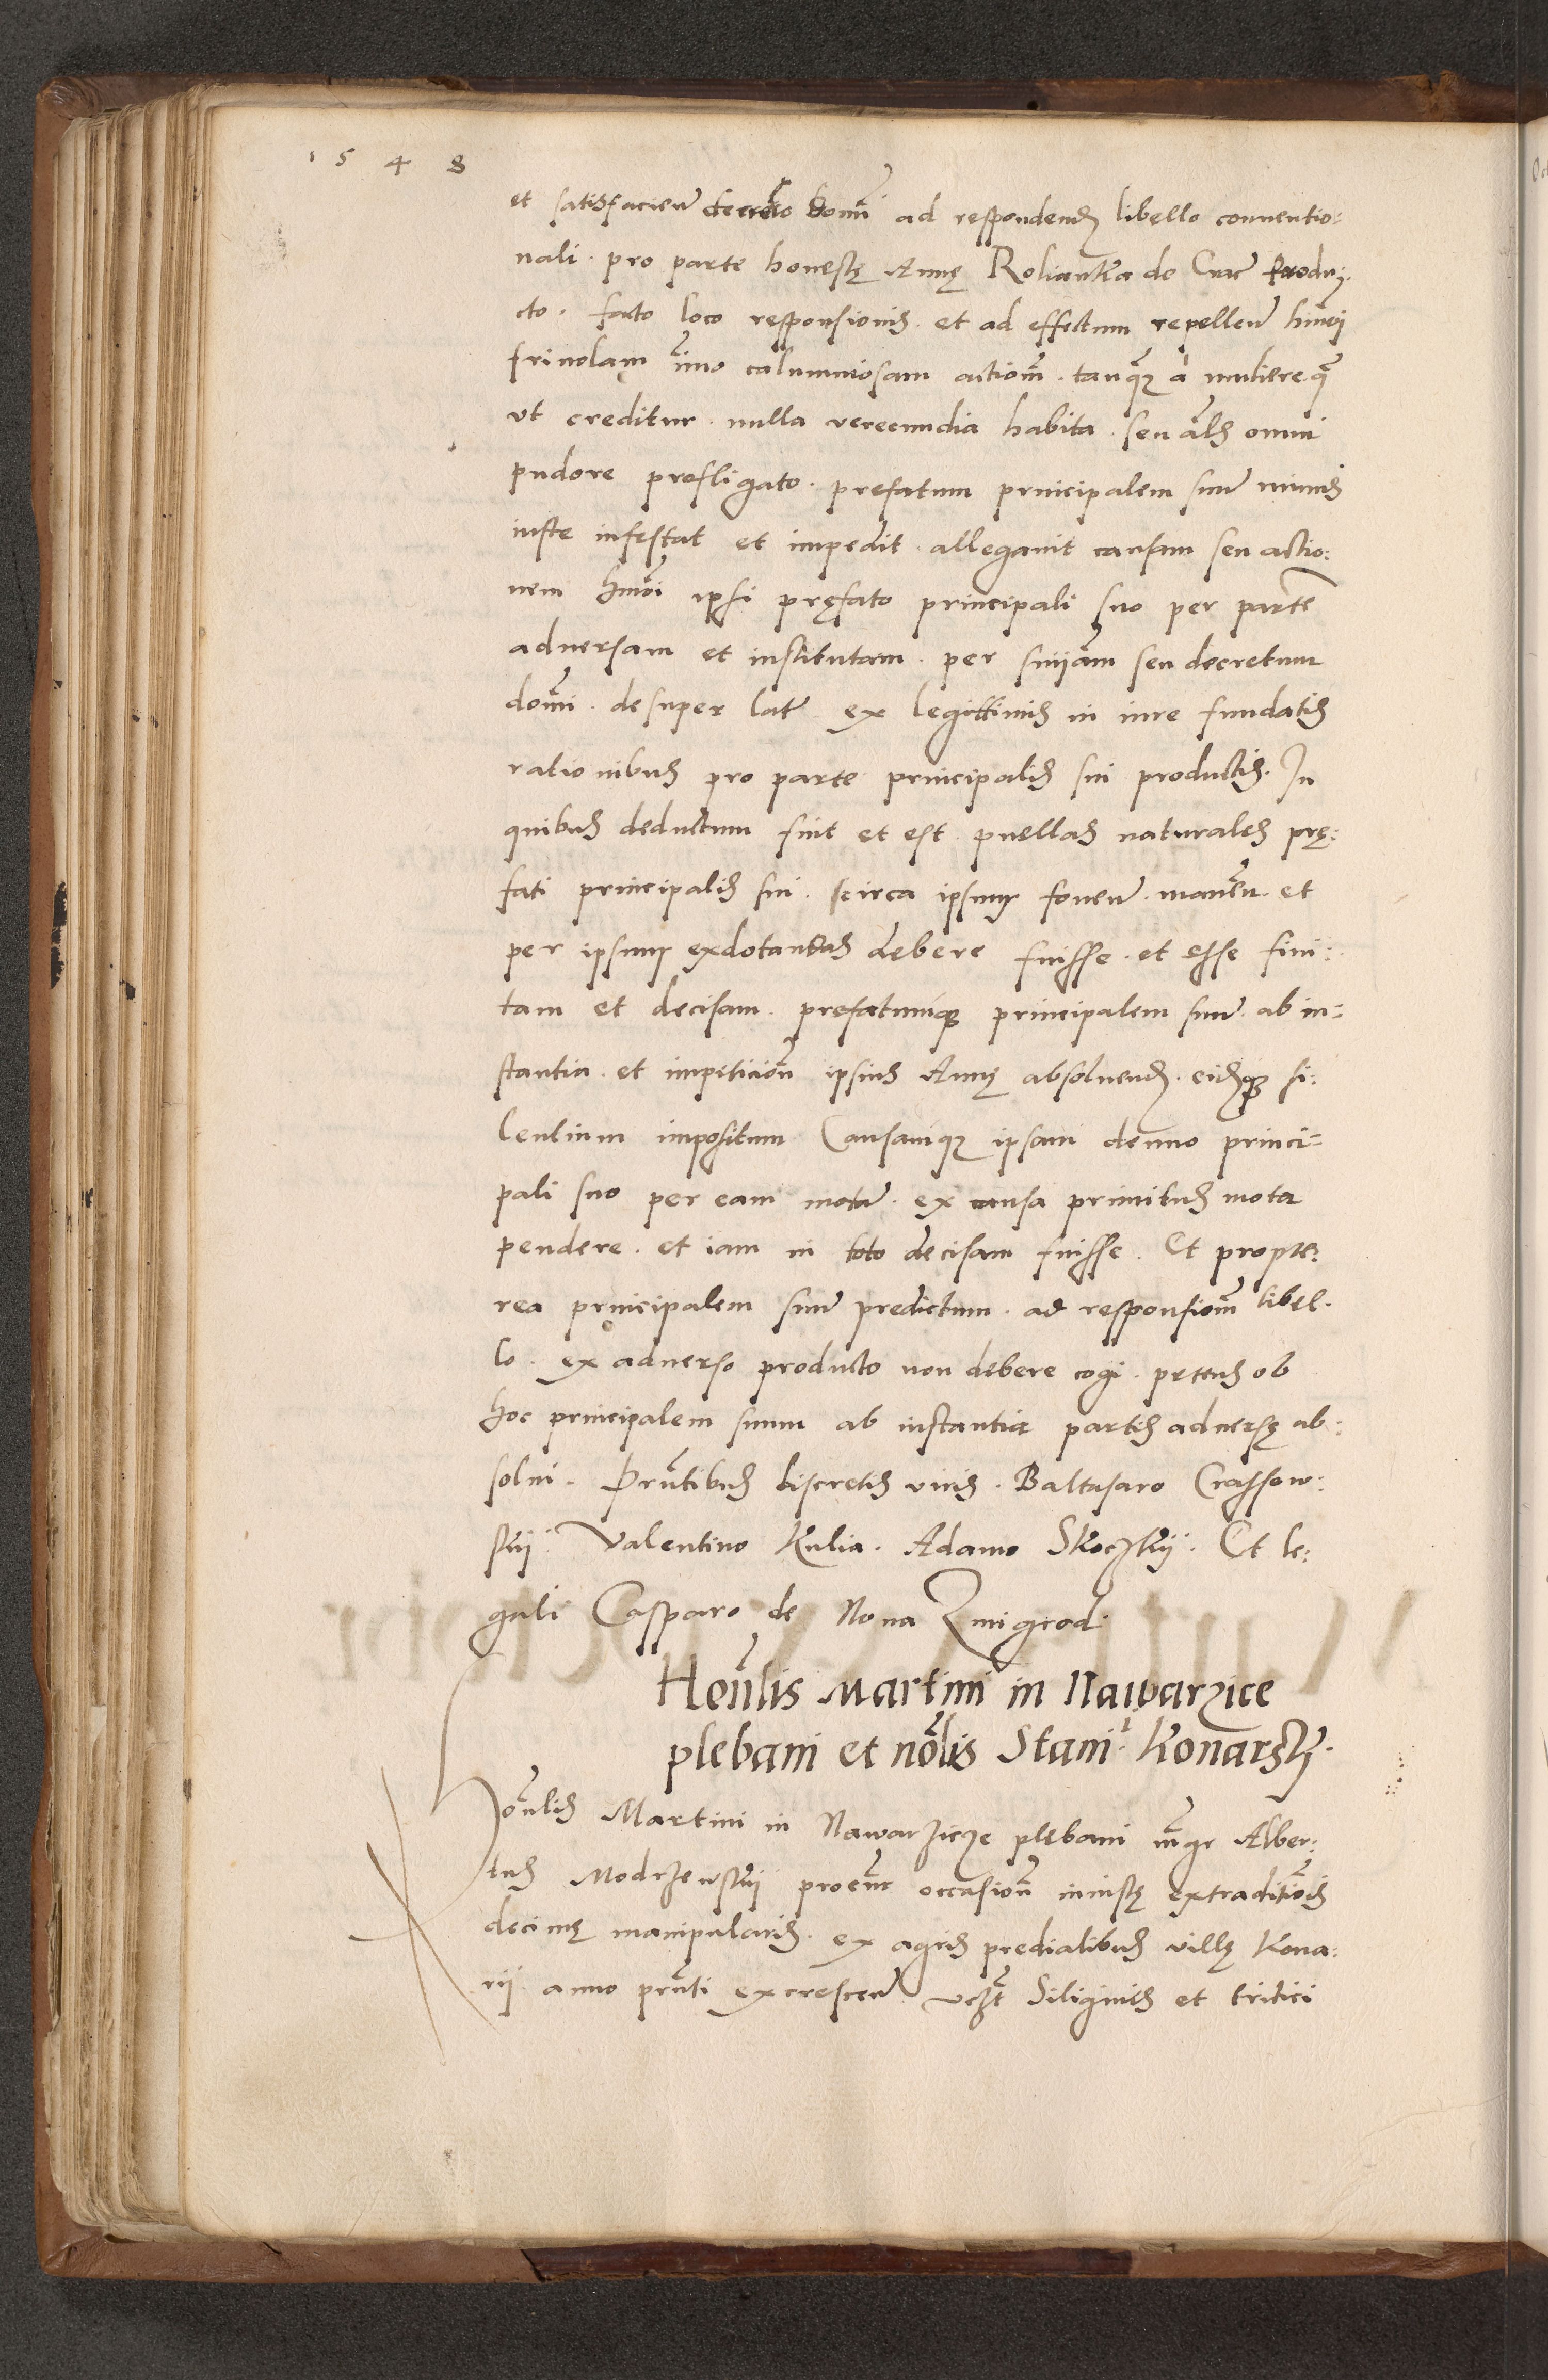 1 5 4 8
et satisfacien̄ decreto dom̄i ad respondend libello conuentio:
nali. pro parte honestę Annę Roliantka de Crac̄ produ:
cto. facto loco responsionis. et ad effectum repellen̄ hm̄oi
friuolam īmo calumniosam actiōm. tanq̄ȝ a muliere. q̄
vt creditur. nulla verecundia habita. seu al̄s omni
pudore profligato. prefatum principalem suum̄ nimis
iuste infestat et impedit. allegauit causam seu actio:
nem hm̄oi ipsi pręfato principali suo per partē
aduersam et institutam. per sniām seu decretum
dom̄i. desuper lat̄. ex legittimis in iure fundatis
rationibus pro parte principalis sui productis. In
quibus deductum fuit et est. puellas naturales prę:
fati principalis sui. circa ipsum fouen̄. manēn. et
per ipsum exdotandas debere fuisse. et esse fini:
tam et decisam. prefatumq principalem suum̄ ab in:
stantia. et impeticiōn ipsius Annę absoluend. eidq si:
lentium impositum Causamqȝ ipsam denuo princi=
pali suo per eam motam̄. ex causa primitus mota
pendere. et iam in toto decisam fuisse. Et propte:
rea principalem suum̄ predictum. ad responsiōm libel.
lo. ex aduerso producto non debere cogi. petens ob
hoc principalem suum ab instantia partis aduersę ab:
solui. Prn̄tibus discretis viris. Baltasaro Crassow:
skij Valentino Kulia. Adamo Skoczkij. Et le:
gali Casparo de Noua Zmigrod.
Hon̄lis Martini in Nawarzice
plebani et nōlis Stani: Konarsk.
Hon̄lis Martini in Nawarzicze plebani m̄gr Alber:
tus Modrzewskij procūr occasiōn iniustę extraditiōis
decimę manipularis. ex agris predialibus villę Kona:
rij. anno prn̄ti excrescen̄. vcȝt Siliginis et tritici